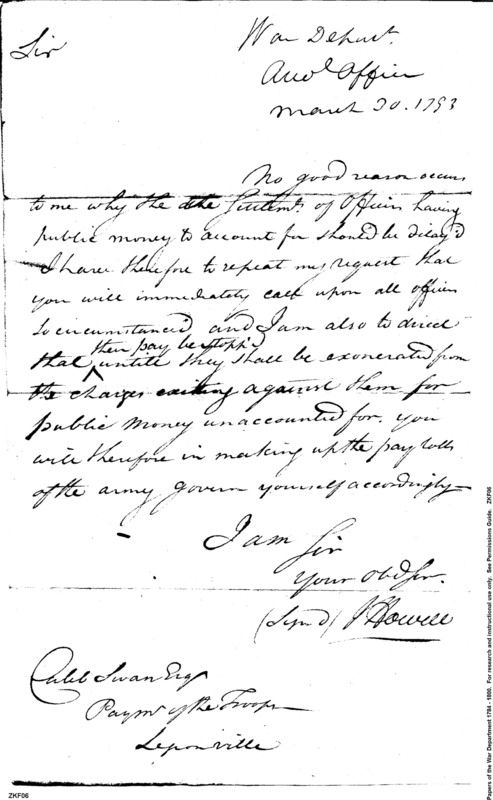 Sir
War Depart.
Acco.t Office
March 30. 1793
No good reason occurs
to me why the Settlemts. of Officers having
public money to account for should be delay'd
I have therefore to repeat my request that
you will immediately call upon all officers
so circumstanced and I am also to direct
their pay be stopp'd
that ^ untill they shall be exonerated from
the charges existing against them for
public money unaccounted for. you
will therefore in making up the pay rolls
of the army govern yourself accordingly—
I am Sir
Your Obd Sr.
(Sign'd) J Howell
Caleb Swan Esqr
Paymr of the Troops
Legionville
ZKF06
Papers of the War Department 1784 - 1800. For research and instructional use only. See Permissions Guide. ZKF06